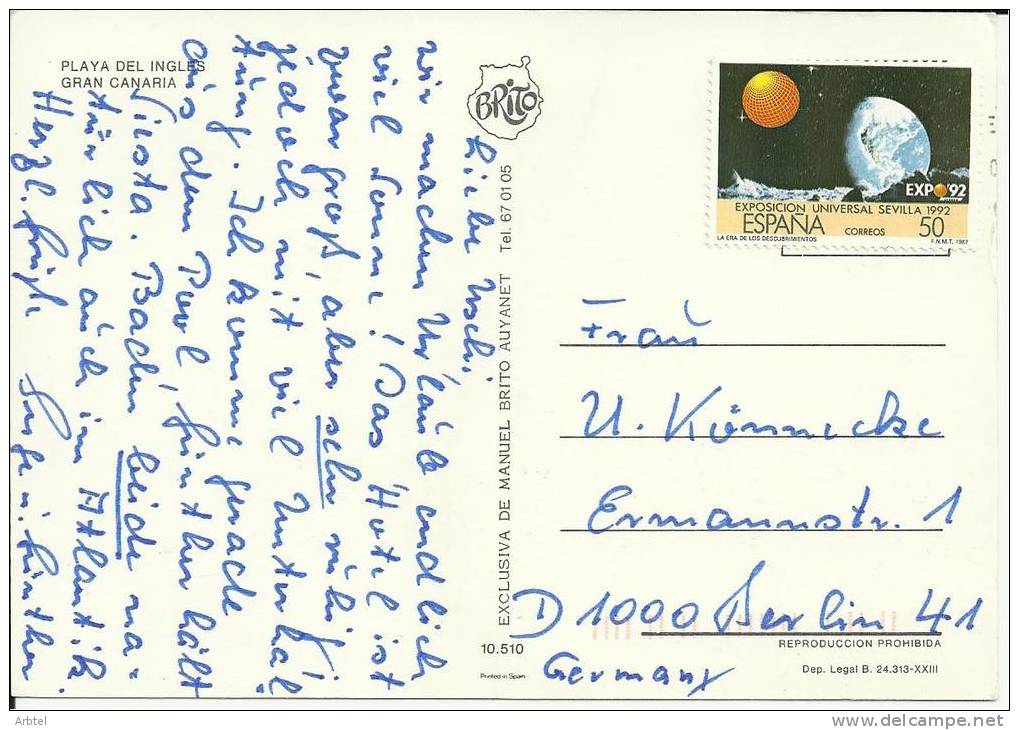 PLAYA DEL INGLES
GRAN CANARIA
BRITO
Liebe Uschi
wir machen Urlaub endlich
viel Sonne! Das Hotel ist
zwar groß, aber sehr ruhig,
jedoch mit viel Unterhal-
tung. Ich komme gerade
aus dem Pool, Günther hält
Siesta. Baden beide na-
türlich auch im Atlantik.
Herzl. Grüße u. Günther
EXCLUSIVA DE MANUEL BRITO AUYANET Tel. 67 01 05
EXPO'92
EXPOSICION UNIVERSAL SEVILLA 1992
ESPAÑA CORREOS 50
LA ERA DE LOS DESCUBRIMIENTOS F.N.M.T. 1987
Frau
U. Könnicke
Ermannstr. 1
D 1000 Berlin 41
Germany
10.510
REPRODUCCION PROHIBIDA
Printed in Spain
Dep. Legal B. 24.313-XXIII
Arbtel
delcampe.net